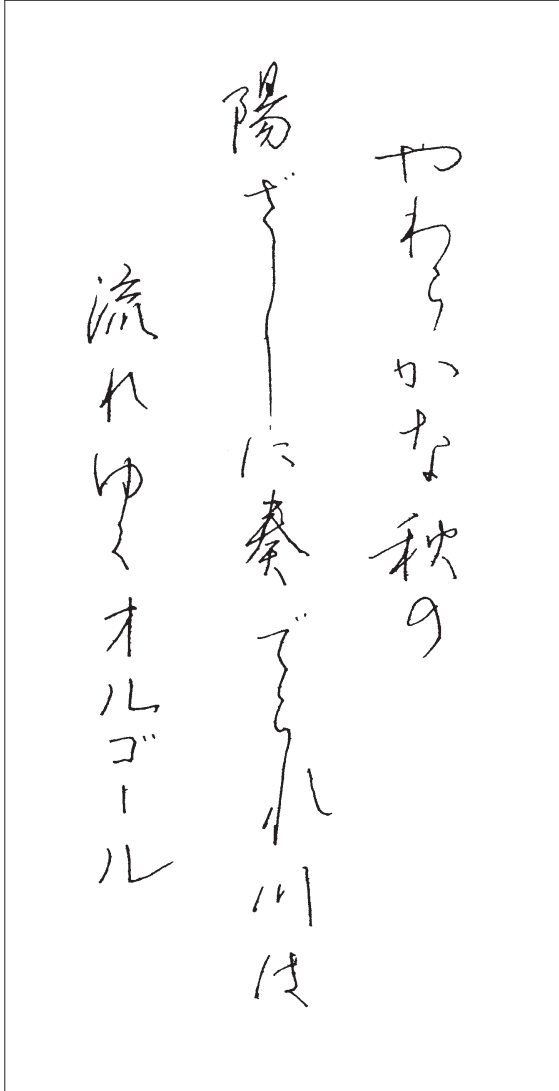 やわらかな秋の
陽ざしに奏でられ川は
流れゆくオルゴール